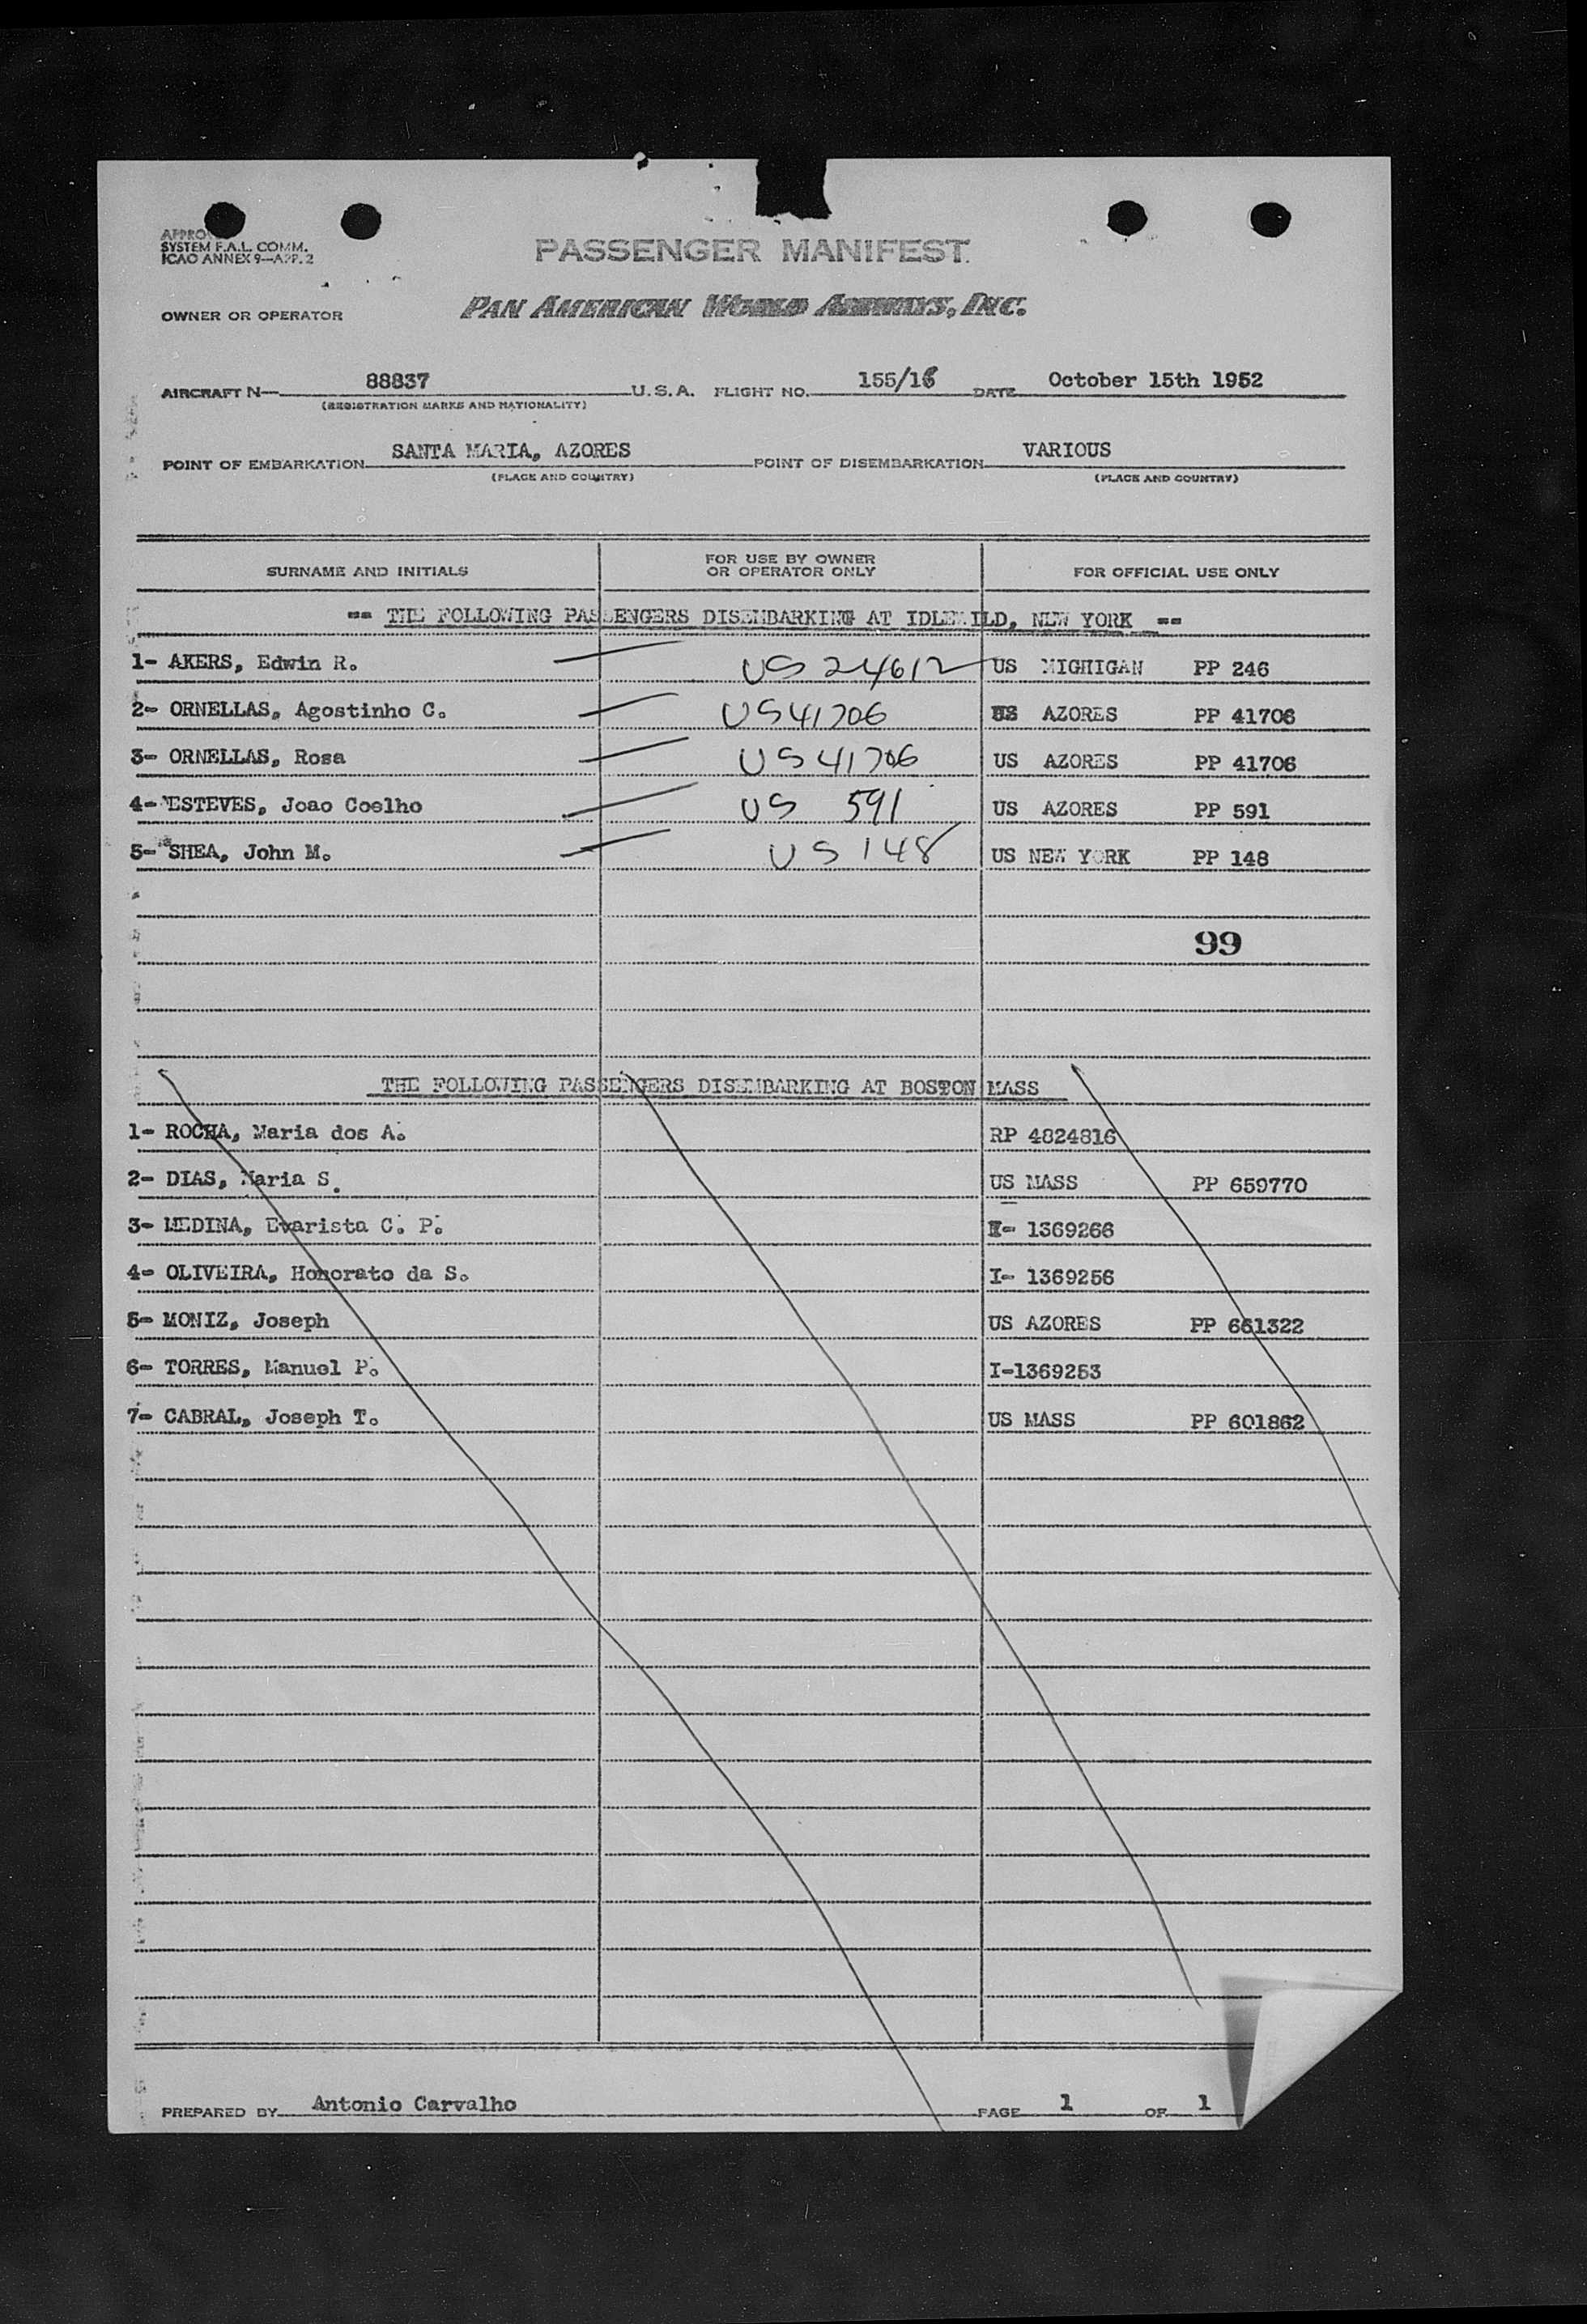 SYSTEM F.A.L. COMM.
ICAO ANNEX 9—APP. 2
PASSENGER MANIFEST
OWNER OR OPERATOR PAN AMERICAN WORLD AIRWAYS, INC.
AIRCRAFT N— 88837 U.S.A. FLIGHT NO. 155/15 DATE October 15th 1952
(REGISTRATION MARKS AND NATIONALITY)
POINT OF EMBARKATION SANTA MARIA, AZORES POINT OF DISEMBARKATION VARIOUS
(PLACE AND COUNTRY) (PLACE AND COUNTRY)
SURNAME AND INITIALS FOR USE BY OWNER OR OPERATOR ONLY FOR OFFICIAL USE ONLY
-- THE FOLLOWING PASSENGERS DISEMBARKING AT IDLEWILD, NEW YORK --
1- AKERS, Edwin R. US 24612 US MIGHIGAN PP 246
2- ORNELLAS, Agostinho C. US 41706 US AZORES PP 41706
3- ORNELLAS, Rosa US 41706 US AZORES PP 41706
4- ESTEVES, Joao Coelho US 591 US AZORES PP 591
5- SHEA, John M. US 148 US NEW YORK PP 148
99
THE FOLLOWING PASSENGERS DISEMBARKING AT BOSTON MASS
1- ROCHA, Maria dos A. RP 4824816
2- DIAS, Maria S. US MASS PP 659770
3- MEDINA, Evarista C. P. I- 1369266
4- OLIVEIRA, Honorato da S. I- 1369256
5- MONIZ, Joseph US AZORES PP 661322
6- TORRES, Manuel P. I-1369253
7- CABRAL, Joseph T. US MASS PP 601862
PREPARED BY Antonio Carvalho PAGE 1 OF 1